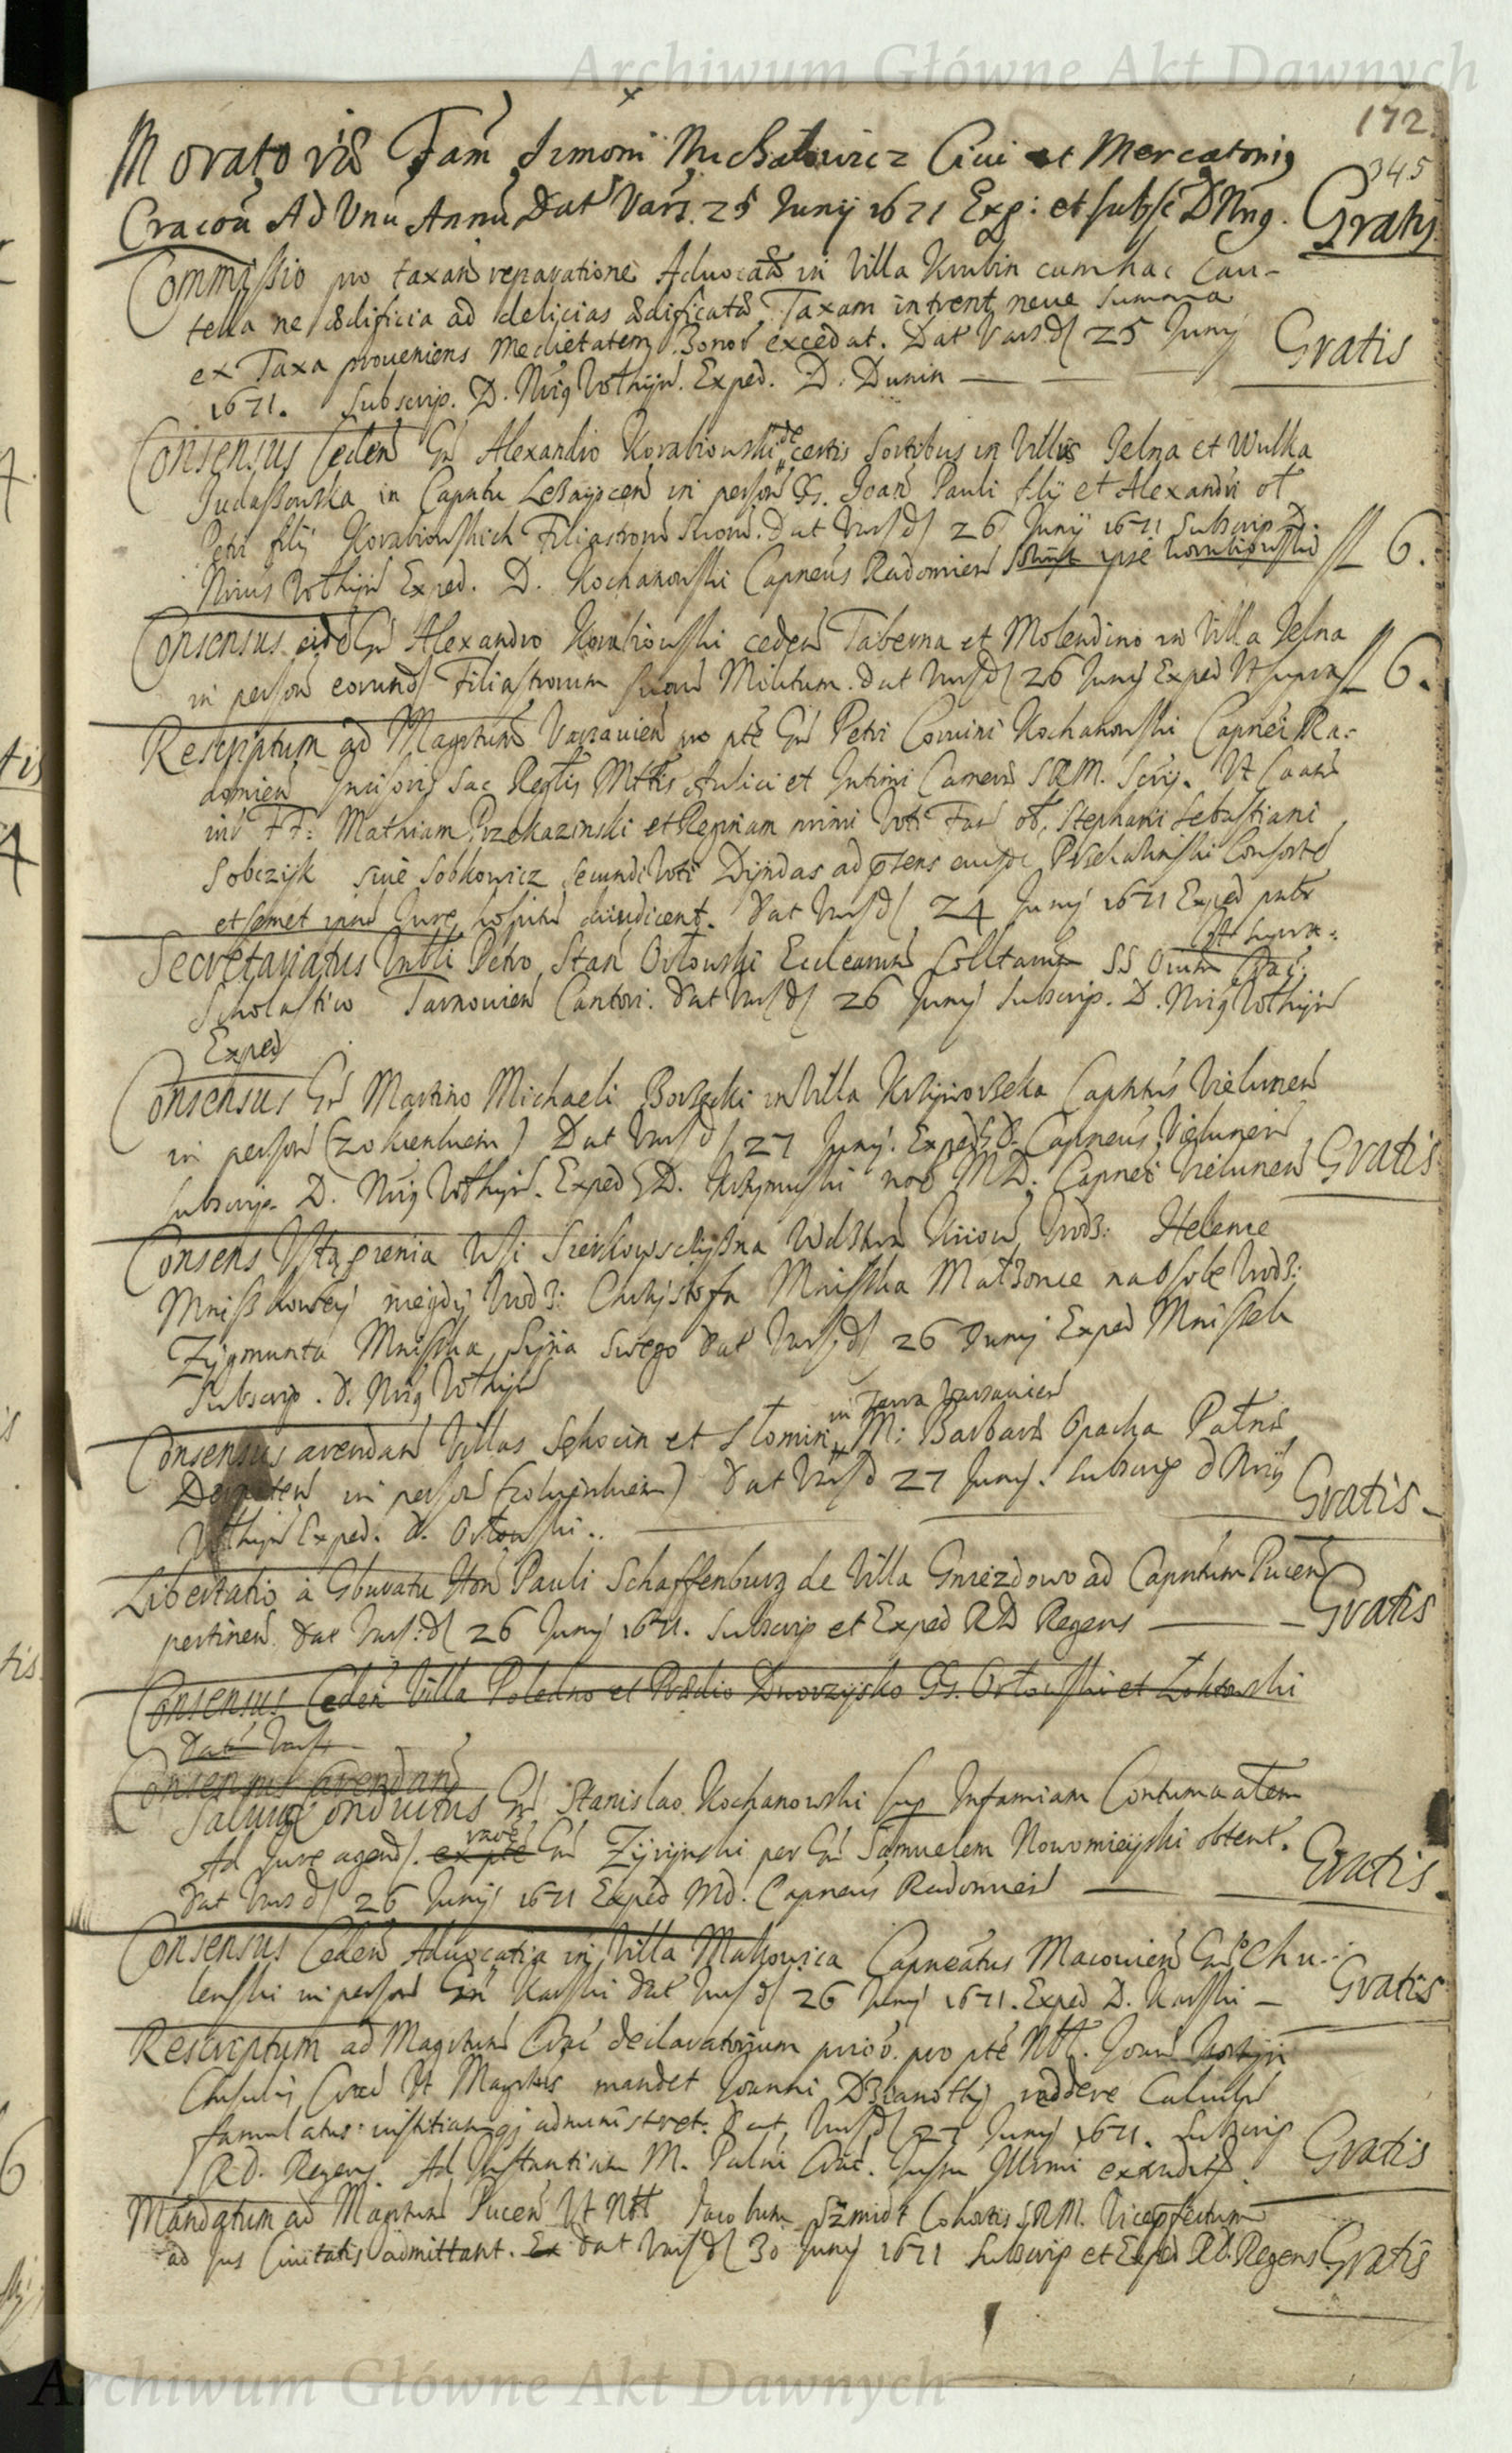 Archiwum Główne Akt Dawnych
172.
345
Moratoriæ Fam Simoni Michałowicz Ciui et Mercatoriq
Cracou Ad Unu Annu Dat Vars. 25 Junÿ 1671 Exp: et subsc DNrq. Gratis
Commissio pro taxan reparatione Aduocatiæ in Villa Krubin cum hac Cau-
tela ne ædificia ad delicias ædificata Taxam intrent neue summa
ex Taxa proueniens medietatem Bonor excedat. Dat Vars d 25 Junÿ Gratis
1671. Subscrip. D. Nrq Vothÿn. Exped. D. Dunin
Consensus Ceden Gn Alexandro Korabiowski de certis Sortibus in Villis Jelna et Wulka
Judaszowska in Capntu Leżayscen in person GG. Joan Pauli filÿ et Alexandri ol
Petri filÿ Korabiowskich Filiastrom Suorū. Dat Vars d 26 Junÿ 1671 Subscrip D.
Nrius Vothÿn Exped. D. Kochanowski Capneus Radomien ipse Korabiowski fl 6.
Consensus eidē Gn Alexandro Korabiowski ceden Taberna et Molendino in Villa Jelna
in person eorund Filiastrorum suorū Militum. Dat Vars d 26 Junÿ Exped Ut supra fl 6.
Rescriptum ad Magrtum Varsauien pro pte Gn Petri Coruini Kochanowski Capnei Ra-
domien Incisoris Sac Reglis Mttis Aulici et Intimi Cameræ SRM. Scrip. Ut
inr FF: Mathiam Przekazinski et Reginam primi Voti Fam ol. Stephani Sebastiani
Sobczÿk siue Sobkowicz secundi Voti Dÿndas ad præsens Consorte
et semet Jure diiudicent. Dat Vars d 24 Junÿ 1671 Exped
Ut supra.
Secretariatus Vnbli Petro Stan Orłowski Eccleārum Colltarum SS Omm Crac:
Scholastico Tarnouien Cantori. Dat Vars d 26 Junÿ Subscrip. D. Nrig Vothÿn
Exped
Consensus Gn Martino Michaeli Borzęcki in Villa Krzÿworzeka Capntus Vielunen
in person (zokienkiem) Dat Vars d 27 Junÿ. Exped D. Capneus Vielunen
subscrip. D. Nrig Vothÿn. Exped D. noe MD. Capnei Vielunen Gratis
Consens Ustąpienia Wsi Sienkowszczÿzna Wdztwa Kiiow Vrodz: Helenie
Mniszkoweÿ niegdÿ Vrodz: Chrzÿstofa Mniszka Małżonce na osobę Vrodz:
Zÿgmunta Mniszka Sÿna swego Dat Vars d 26 Junÿ Exped Mniszek
Subscrip. D. Nrig Vothÿn
in Terra Varsauien
Consensus arendan Villas Sękocin et Słomin M: Barbaræ Opacka Palnæ
Dorpaten in person (zokienkiem) Dat Vars d 27 Junÿ. Subscrip D Nrig Gratis.
Vothÿn Exped. D. Orłowski.
Libertatio à Gburatu Hon Pauli Schaffenburg de Villa Gniezdowo ad Capntum Pucen
pertinen. Dat Vars: d 26 Junÿ 1671. Subscrip et Exped RD Regens Gratis
Consensus Ceden Villa Poledno et Prædio Dworzÿsko GG. Orłowski et Zoktowski
Dat Vars
Consensus arendand
Saluus Conductus Gn Stanislao Kochanowski sup Infamiam Contumacialem
Ad Jure agend. ex pte Gn Zÿrÿnski per Gn Samuelem Nowomieÿski obtent. Gratis.
Dat Vars d 26 Junÿ 1671 Exped MD. Capneus Radomien
Consensus Ceden Aduocatia in Villa Makowica Capneatus Macouien Gnso Chu-
lenski in person Gn Karski Dat Vars d 26 Junÿ 1671. Exped D. Karski Gratis
Rescriptum ad Magrtum Crac declaratorium prioris pro pte Nbl. Joan
Consulis Crac Ut Magrtus mandet Joanni Dzianothÿ reddere Calculum
famulatus iustitiamq administret. Dat Vars d 27 Junÿ 1671. Subscrip
RD. Regens. Ad Instantiam M. Palni Crac. Jussu Illrmi extradit. Gratis
Mandatum ad Magrtum Pucen Ut Nbl Jacobum Szmidt Cohortis SRM. Vicepfectum
ad Jus Ciuitatis admittant. Ex Dat Vars d 30 Junÿ 1671 Subscrip et Exped RD. Regens Gratis
Archiwum Główne Akt Dawnych